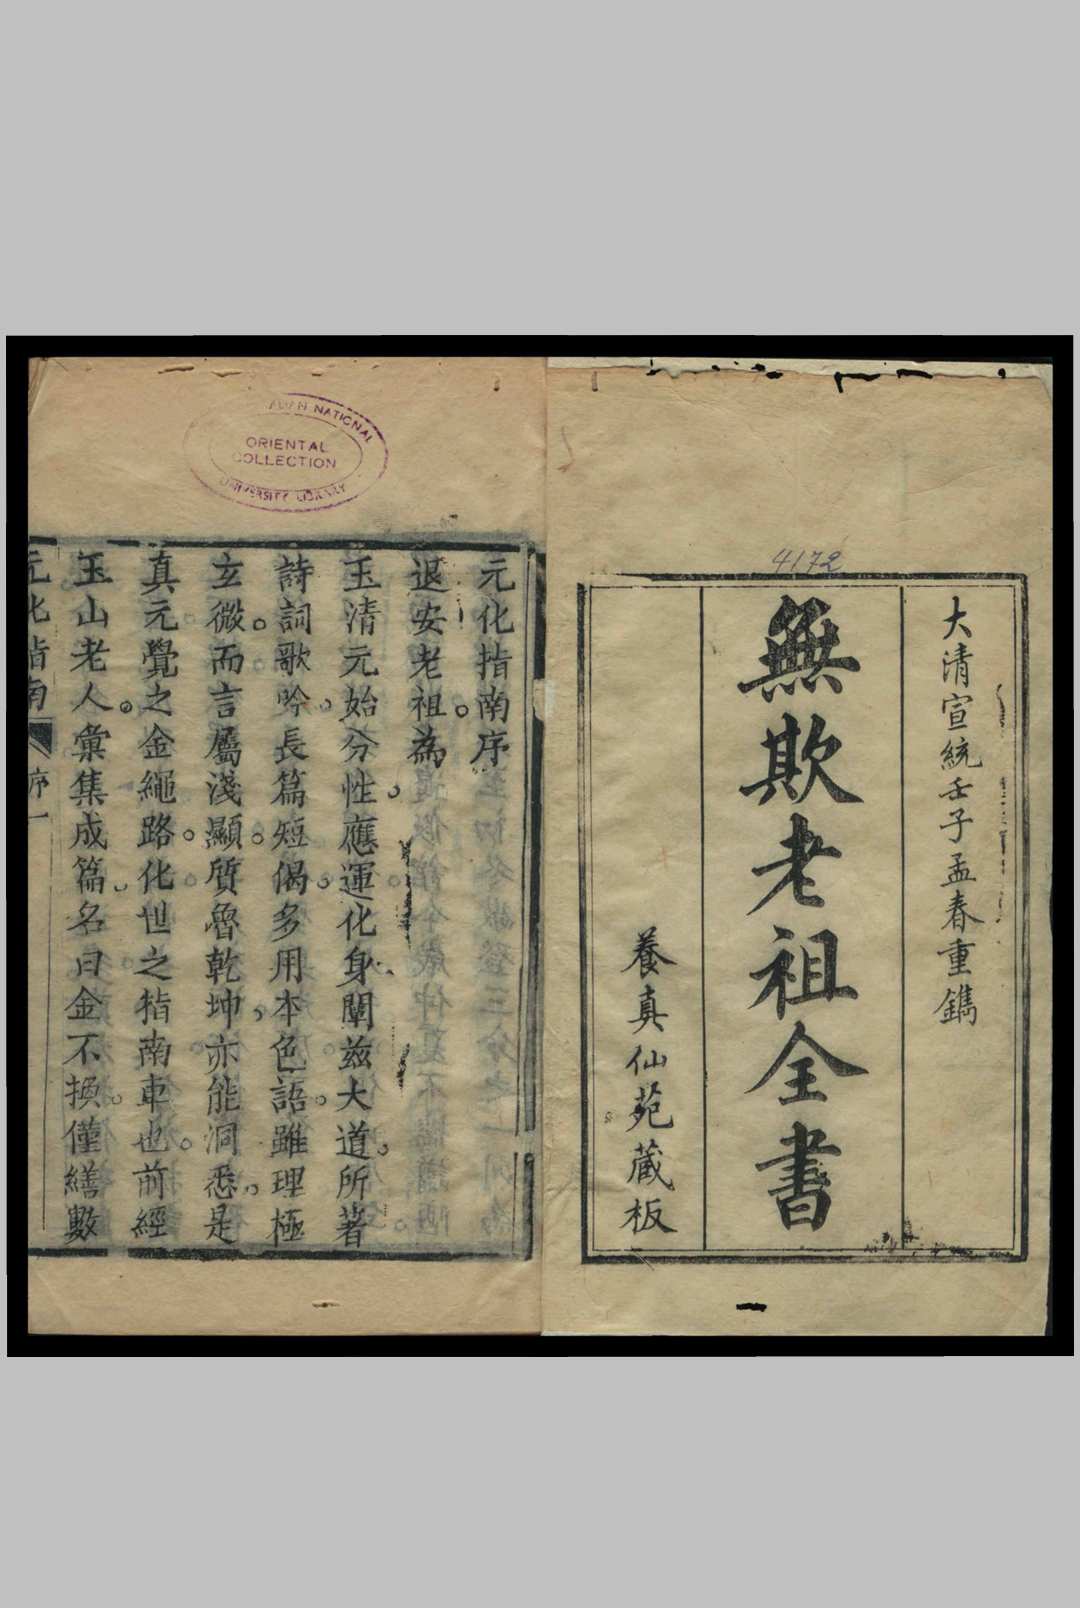 大清宣統壬子孟春重鐫
無欺老祖全書
養真仙苑藏板
4172
NATIONAL
ORIENTAL
COLLECTION
UNIVERSITY LIBRARY
元化指南序
退安老祖。為
玉清元始分性。應運化身。闡茲大道。所著
詩詞歌吟。長篇短偈。多用本色語。雖理極
玄微。而言屬淺顯。質魯乾坤。亦能洞悉。是
真元覺之金繩路。化世之指南車也。前經
玉山老人。彙集成篇。名曰金不換。僅繕數
元化指南 序 一